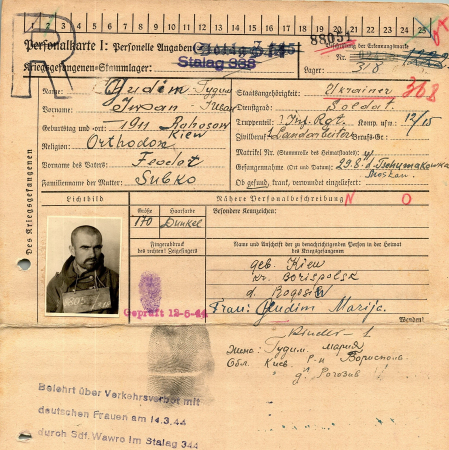 1 2 3 4 5 6 7 8 9 10 11 12 13 14 15 16 17 18 19 20 21 22 23 24 25
Personalkarte I: Personelle Angaben
88051
Kriegsgefangenen-Stammlager: Stalag 338
Lager: 318
R
Name: Gudim
Staatsangehörigkeit: Ukrainer
368
Vorname: Iwan
Dienstgrad: Soldat
Geburtstag und -ort: 1911 Rohosow Kiew
Truppenteil: Inf. Rgt. Komp. usw.: 12/15
Religion: Orthodox
Zivilberuf: Landarbeiter Berufs-Gr.
Vorname des Vaters: Feodot
Matrikel Nr. (Stammrolle des Heimatstaates):
Gefangennahme (Ort und Datum): 29.8.
Familienname der Mutter: Subko
Ob gesund, krank, verwundet eingeliefert:
Des Kriegsgefangenen
Lichtbild
Nähere Personalbeschreibung
N O
Größe
Haarfarbe
Besondere Kennzeichen:
170
Dunkel
Fingerabdruck
des rechten Zeigefingers
Name und Anschrift der zu benachrichtigenden Person in der Heimat
des Kriegsgefangenen
geb. Kiew
kr. Borispolsk
Geprüft 12-5-44
Frau: Gudim Marija
Wenden!
Kinder - 1
Жена: Гудим Мария
Обл. Киев Р-н Борисполь
д. Рогозив
Belehrt über Verkehrsverbot mit
deutschen Frauen am 14.3.44
durch Sdf. Wawro im Stalag 344